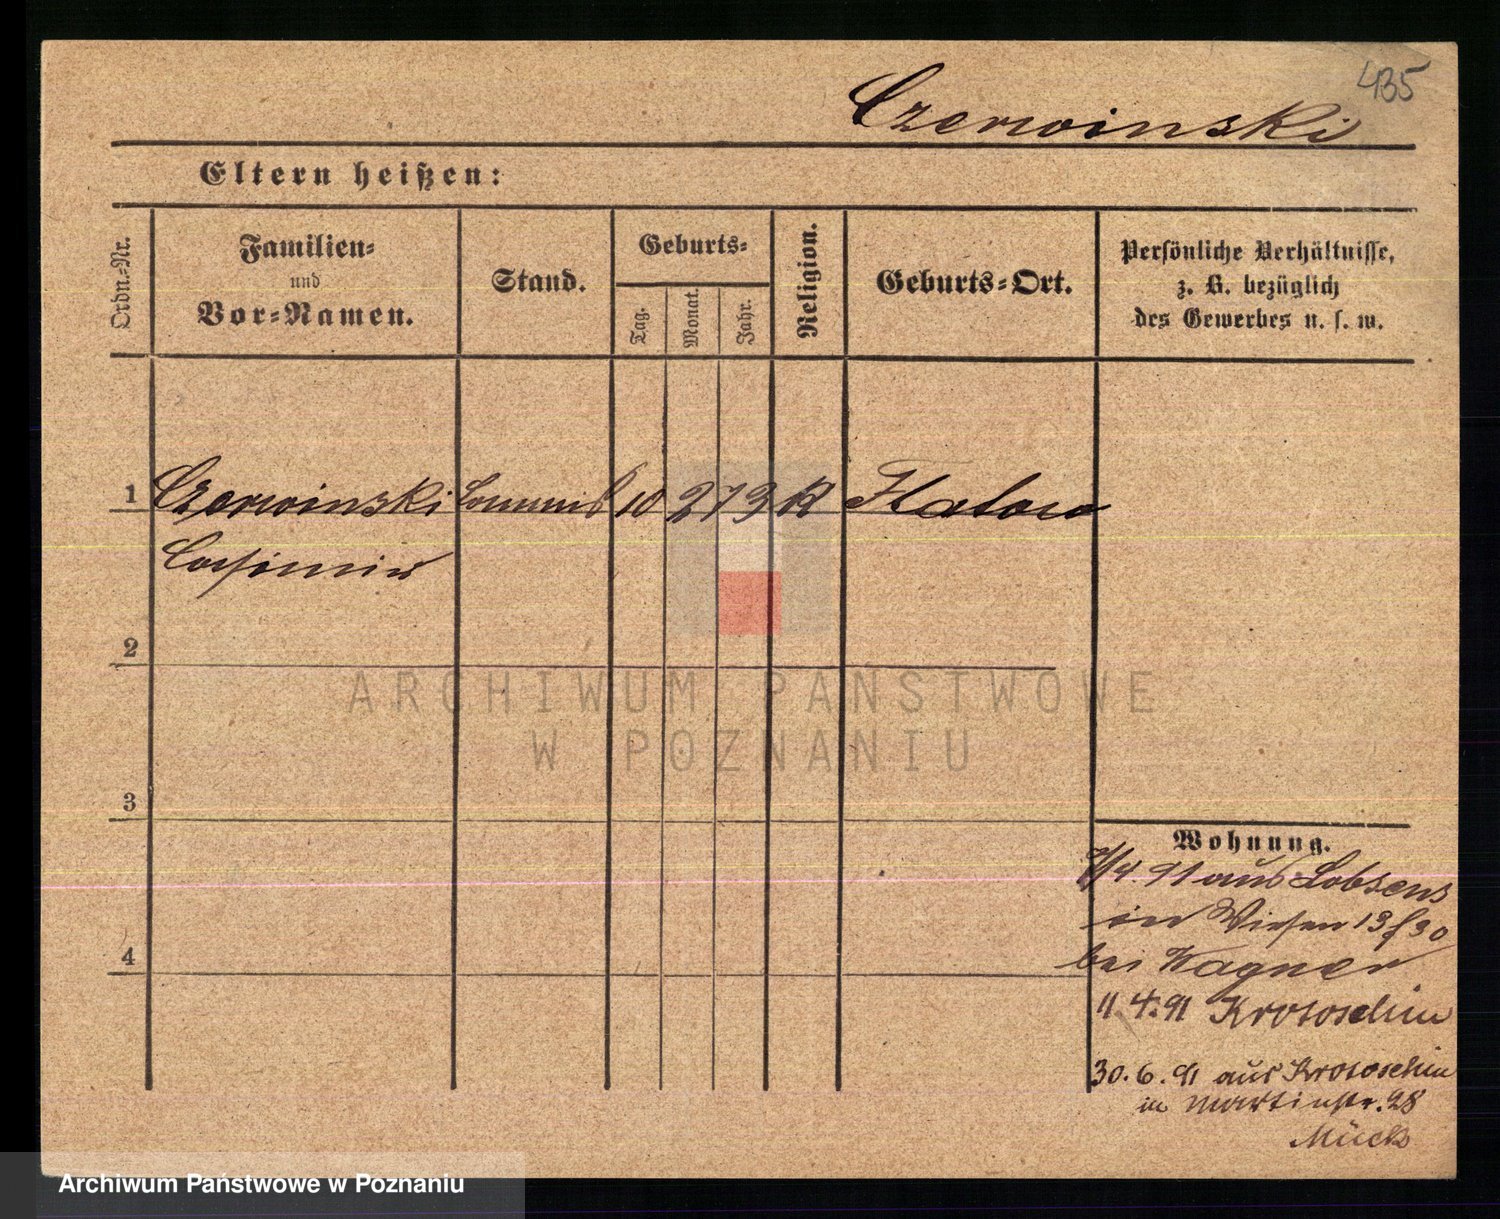 435
Czerwinski
Eltern heißen:
Ordn.-Nr.
Familien-
und
Vor-Namen.
Stand.
Geburts-
Tag.
Monat.
Jahr.
Religion.
Geburts-Ort.
Persönliche Verhältnisse,
z. B. bezüglich
des Gewerbes u. s. w.
1 Czerwinski Commis 10 2 73 K Flatow
Casimir
2
ARCHIWUM PAŃSTWOWE
W POZNANIU
3
4
Wohnung.
/4. 91 aus Lobsens
in Wiesen 13
bei Wagner
11. 4. 91 Krotoschin
30. 6. 91 aus Krotoschin
in Martinstr. 28
Mück
Archiwum Państwowe w Poznaniu